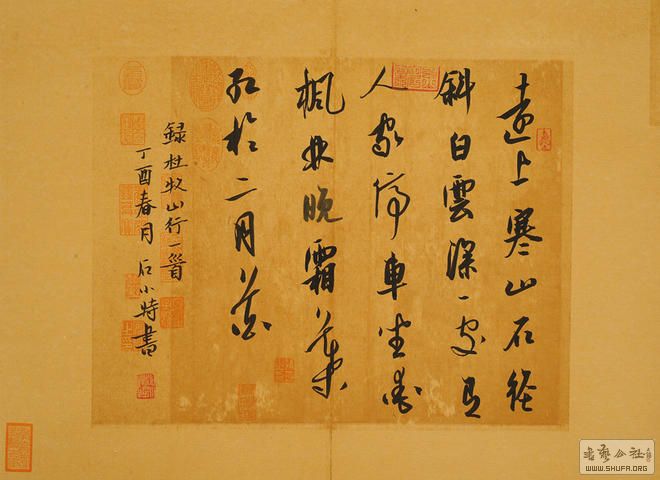 遠上寒山石徑
斜白雲深處有
人家停車坐愛
楓林晚霜葉
紅於二月花
録杜牧山行一首
丁酉春月石小特書
書藝公社
WWW.SHUFA.ORG